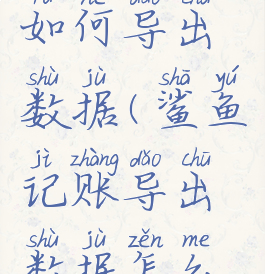 rú hé dǎo chū
如何导出
shù jù shā yú
数据(鲨鱼
jì zhàng dǎo chū
记账导出
shù jù zěn me
数据怎么